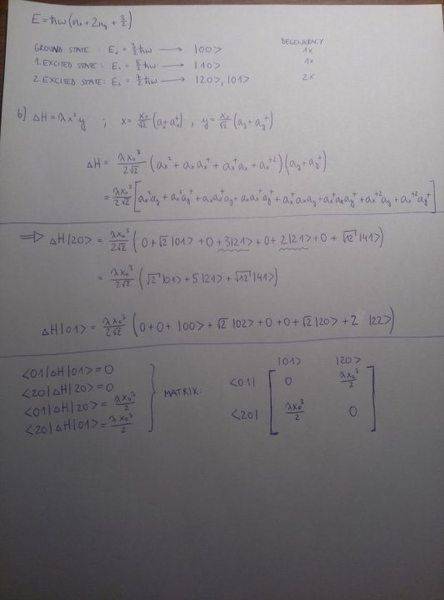 E = ħω(nₓ + 2n_y + 3/2)
DEGENERACY
GROUND STATE : E₀ = 3/2 ħω ⟶ |00> 1x
1. EXCITED STATE: E₁ = 5/2 ħω ⟶ |10> 1x
2. EXCITED STATE: E₂ = 7/2 ħω ⟶ |20>, |01> 2x
b) ΔH = λx²y ; x = x₀/√2 (aₓ + aₓ⁺) , y = x₀/√2 (a_y + a_y⁺)
ΔH = λx₀³/2√2 (aₓ² + aₓaₓ⁺ + aₓ⁺aₓ + aₓ⁺²)(a_y + a_y⁺)
= λx₀³/2√2 [aₓ²a_y + aₓ²a_y⁺ + aₓaₓ⁺a_y + aₓaₓ⁺a_y⁺ + aₓ⁺aₓa_y + aₓ⁺aₓa_y⁺ + aₓ⁺²a_y + aₓ⁺²a_y⁺]
⟹ ΔH|20> = λx₀³/2√2 (0 + √2|01> + 0 + 3|21> + 0 + 2|21> + 0 + √12|41>)
= λx₀³/2√2 (√2|01> + 5|21> + √12|41>)
ΔH|01> = λx₀³/2√2 (0 + 0 + |00> + √2|02> + 0 + 0 + √2|20> + 2 |22>)
<01|ΔH|01> = 0
<20|ΔH|20> = 0
<01|ΔH|20> = λx₀³/2
<20|ΔH|01> = λx₀³/2
MATRIX:
|01> |20>
<01| 0 λx₀³/2
<20| λx₀³/2 0